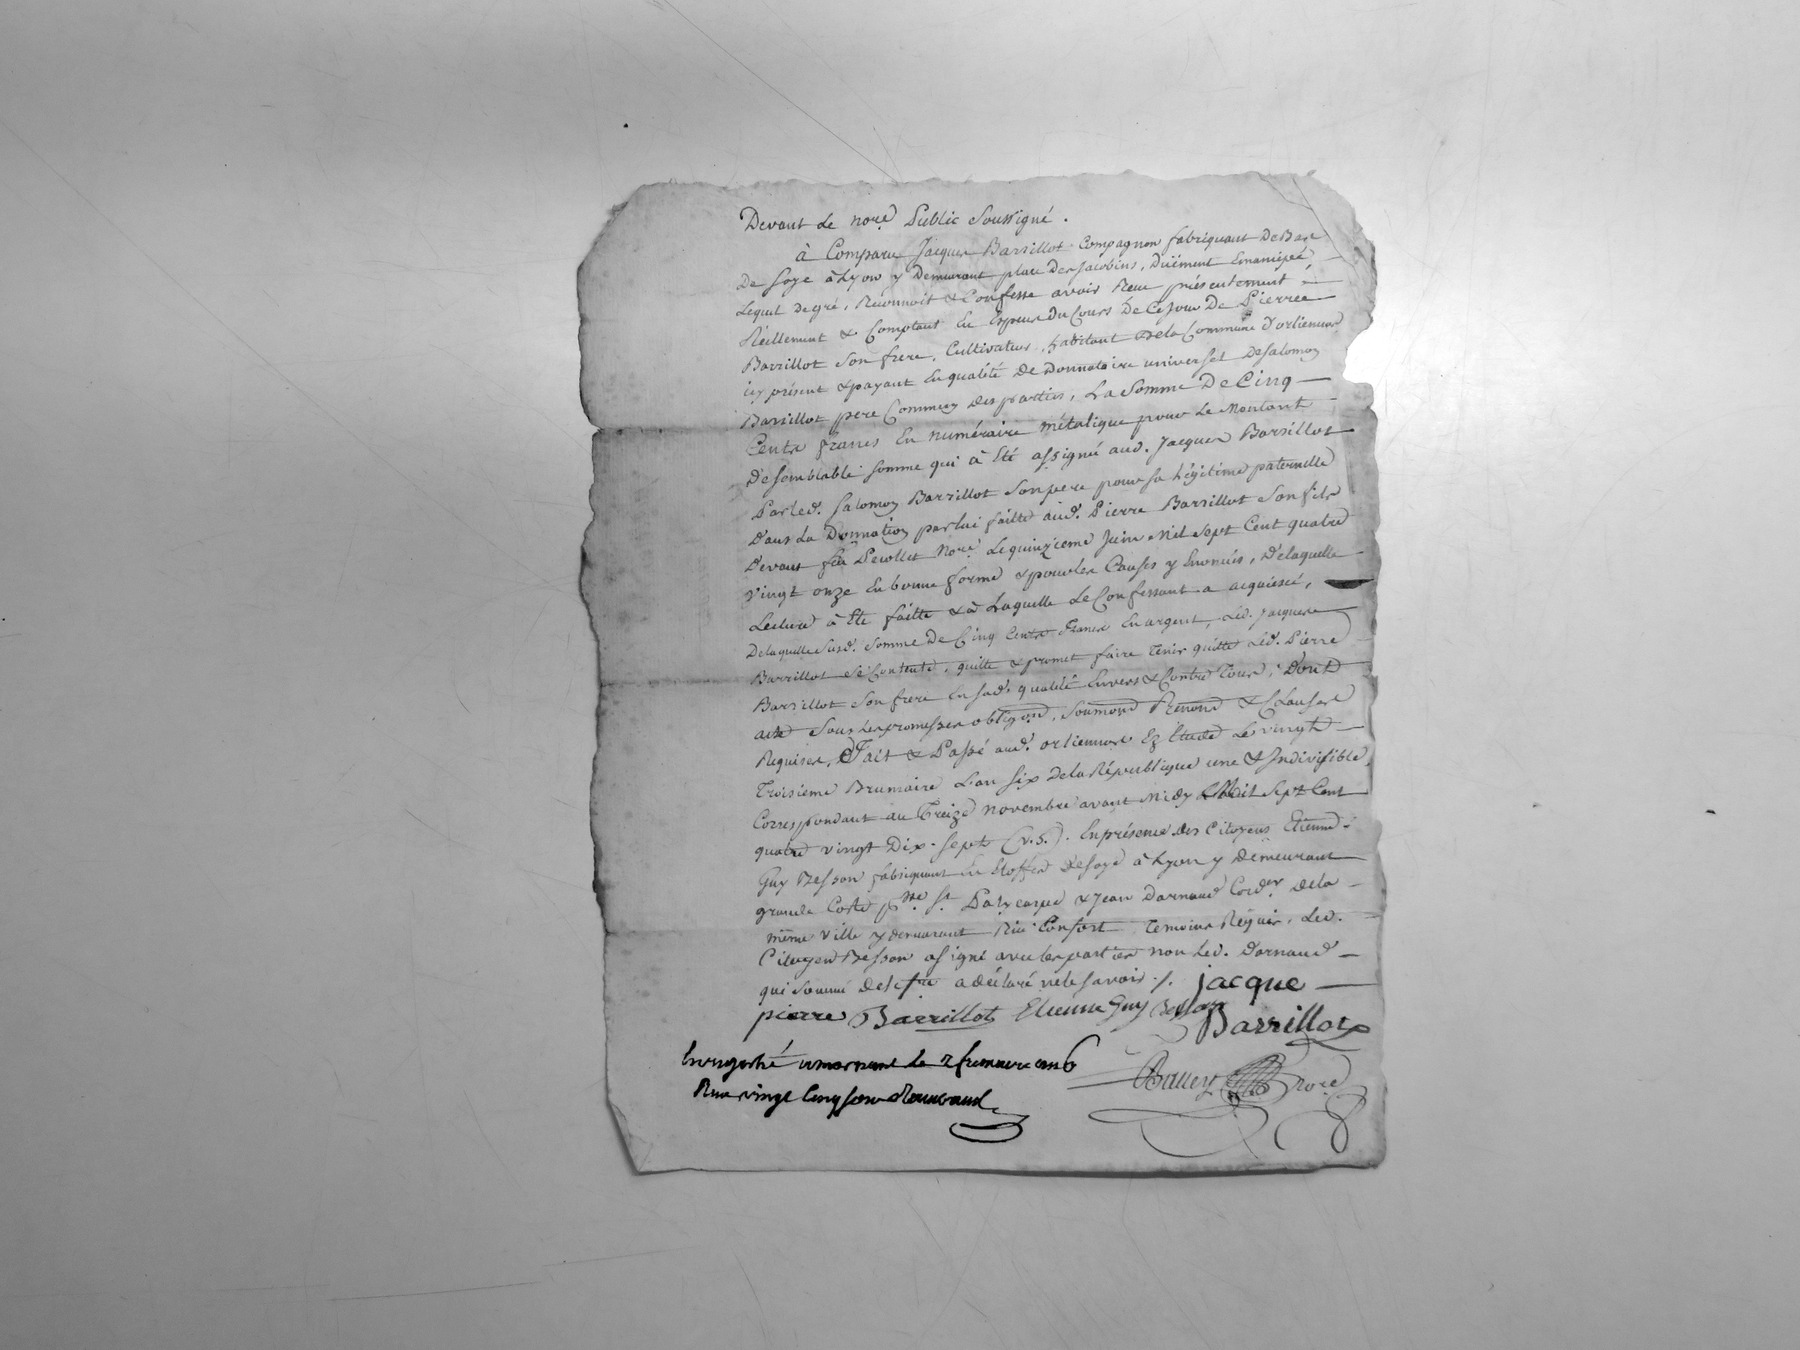 Devant Le no.re Public Soussigné.
à Comparu Jacques Barrillot Compagnon fabriquant De Bas
De soye à Lyon y Demeurant place Des Jacobins, Duëment Emancipé
Lequel de gré, Reconnoit & Confesse avoir Reçu présentement
Réellement & Comptant En Espèces Du Cours De Ce Jour De Pierre
Barrillot Son frere, Cultivateur, habitant De la Commune d'orlienas
icy présent & payant En qualité De Donnataire universel De Salomon
Barrillot pere Commun Des parties, La Somme De Cinq
Cents francs En numéraire métalique pour Le Montant
De semblable somme qui à Eté assigné aud. Jacques Barrillot
Par led. Salomon Barrillot Son pere pour sa Légitime paternelle
Dans La Donnation par lui faitte aud. Pierre Barrillot Son fils
Devant feu Decollet no.re Le quinzieme Juin Mil Sept Cent quatre
vingt onze En bonne forme & pour les Causes y Enoncés, De laquelle
Lecture à Eté faitte & à Laquelle Le Confessant a acquiescé,
De laquelle Susd. Somme De Cinq Cents francs En argent, Led. Jacques
Barrillot Se Contente, quitte & promet faire Tenir quitte Led. Pierre
Barrillot Son frere En sad. qualité Envers & Contre Tous, Dont
acte Sous les promesses obligaõns, Soumons Renons & Clauses
Requises, Fait & Passé aud. orlienas Ez Etude Le vingt
Troisieme Brumaire L'an Six de la République une & Indivisible,
Correspondant au Treize novembre avant Midy Mil Sept Cent
quatre vingt Dix-sept (v.s.). En présence des Citoyens Etienne
Guy Besson fabriquant En Etoffes De Soye à Lyon y Demeurant
grande Coste St Polycarpe & Jean Darnaud Cord.er De la
même ville y demeurant Rue Confort Temoins Requis, Led.
Citoyen Besson a signé avec les parties non Led. Darnaud
qui Sommé De le fre a déclaré ne le savoir ./. jacque
pierre Barrillot Etienne Guy Besson Barrillot
Enregistré a mornant le 2 frimaire an 6
Reçu vingt Cinq sous
no.re